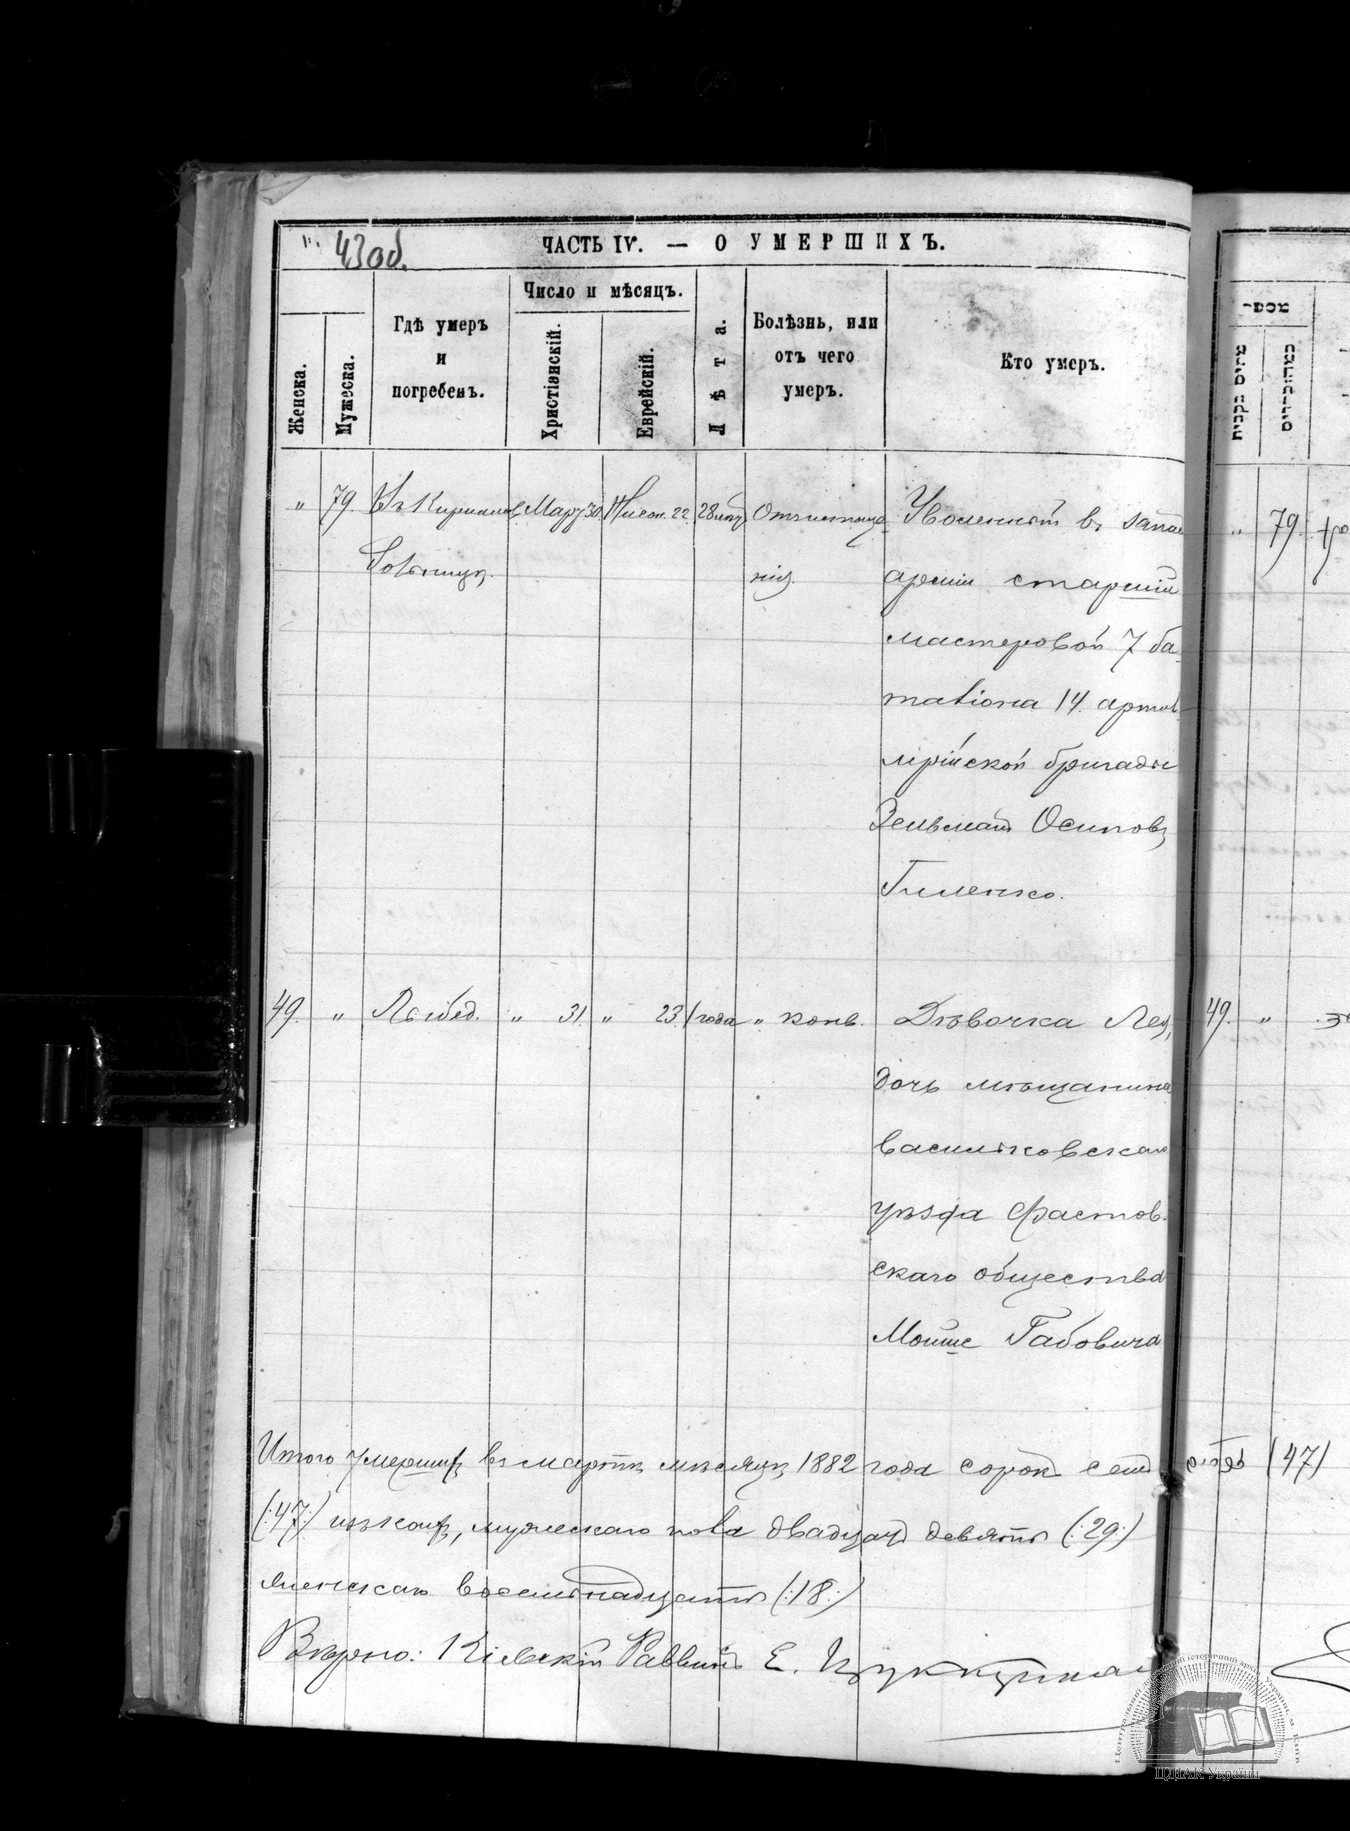 43об.
ЧАСТЬ IV. — О УМЕРШИХЪ.
Женска.
Мужеска.
Гдѣ умеръ
и
погребенъ.
Число и мѣсяцъ.
Христіянскій.
Еврейскій.
Лѣта.
Болѣзнь, или
отъ чего
умеръ.
Кто умеръ.
" 79. Въ Кирилов. Март 30 Нисон. 22 28 Отъ истоще- Уволенный въ запас
больниц. нія. арміи старшій
мастеровой 7 ба-
таліона 14 артил-
лерійской бригады
Зельман Осиповъ
Гиленко.
49. " Лыбед. " 31 " 23 1 года " конв. Дѣвочка Лея,
дочь мѣщанина
васильковскаго
уѣзда фастов-
скаго общества
Мойше Габовича
Итого умершихъ въ мартѣ мѣсяцѣ 1882 года сорокъ семь
(:47:) изъ коихъ, мужескаго пола двадцать девять (:29:)
женскаго восемнадцать (:18:)
Вѣрно: Кіевскій Раввинъ Е. Цуккерман
" 79.
49. "
(47)
ЦДІАК України